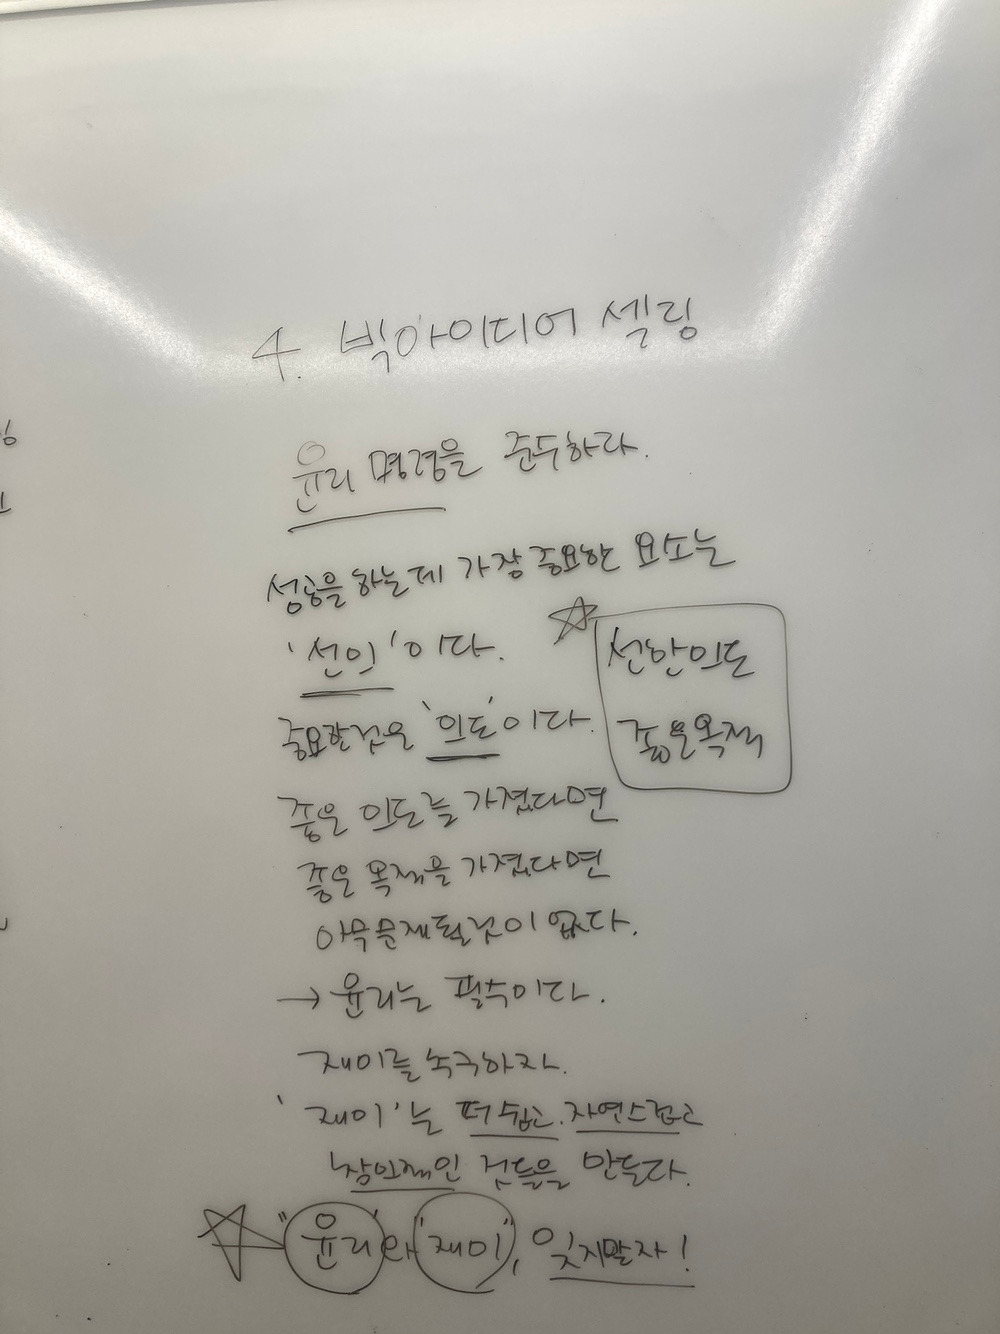 4. 빅아이디어 셀링
윤리 명령을 준수하라.
성공을 하는데 가장 중요한 요소는
'선의'이다.
선한의도
좋은목적
중요한것은 '의도'이다.
좋은 의도를 가졌다면
좋은 목적을 가졌다면
아무문제될것이 없다.
→ 윤리는 필수이다.
재미를 추구하자.
'재미'는 더 쉽고. 자연스럽고
창의적인 것들을 만든다.
"윤리"와 "재미", 잊지말자!